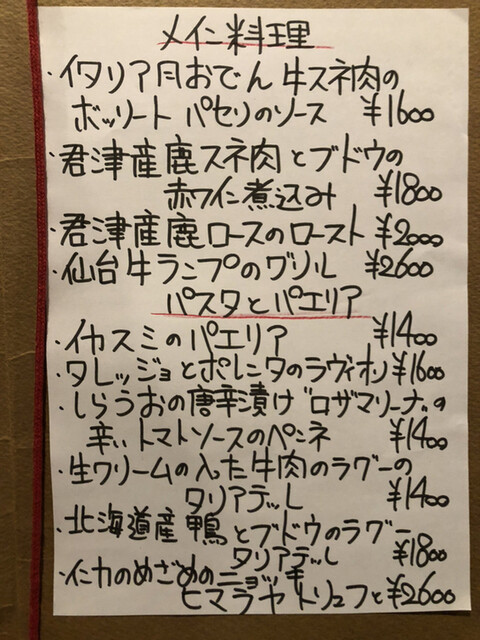 メイン料理
・イタリア風おでん 牛スネ肉の
ボッリート パセリのソース ¥1600
・君津産鹿スネ肉とブドウの
赤ワイン煮込み ¥1800
・君津産鹿ロースのロースト ¥2000
・仙台牛ランプのグリル ¥2600
パスタとパエリア
・イカスミのパエリア ¥1400
・タレッジョとポレンタのラヴィオリ ¥1600
・しらうおの唐辛漬け"ロザマリーナ"の
辛いトマトソースのペンネ ¥1400
・生クリームの入った牛肉のラグーの
タリアテッレ ¥1400
・北海道産鴨とブドウのラグー
タリアテッレ ¥1800
ニョッキ
ヒマラヤトリュフと ¥2600